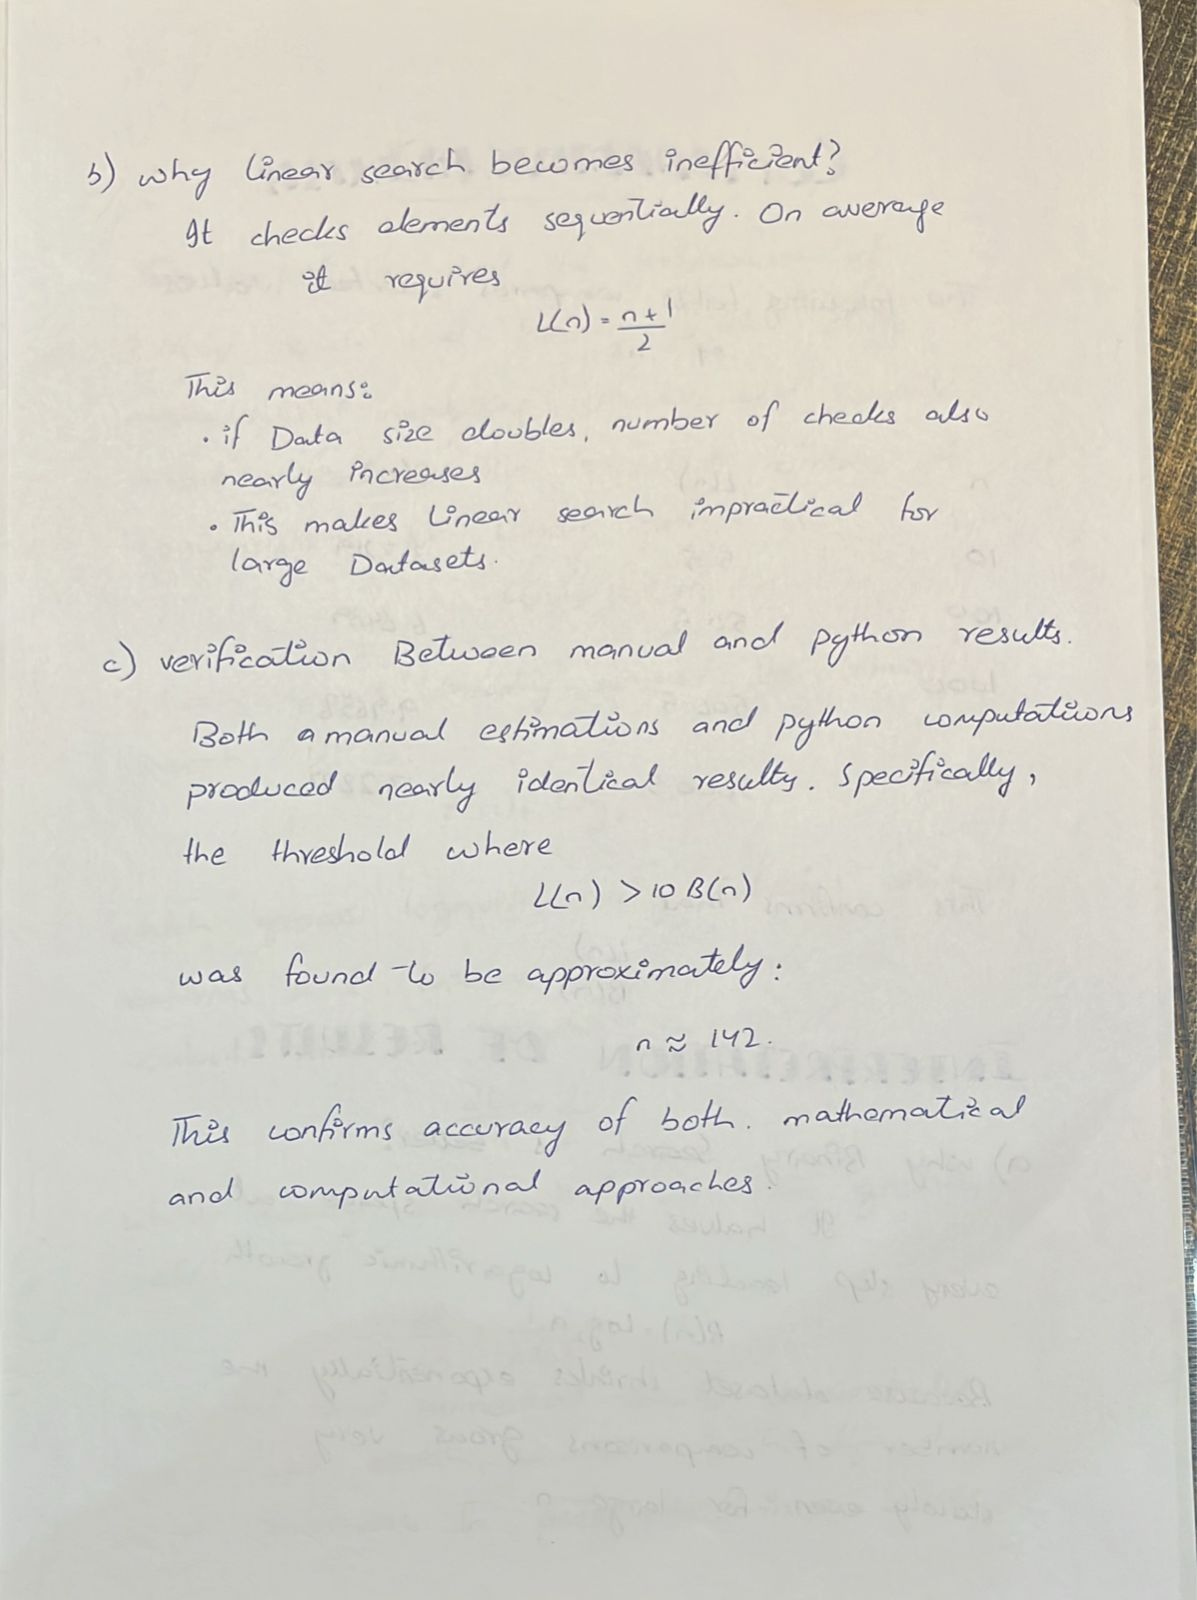 b) why linear search becomes inefficient?
It checks elements sequentially. On average
it requires
L(n) = n+1
2
This means:
• if Data size doubles, number of checks also
nearly increases
• This makes Linear search impractical for
large Datasets.
c) verification Between manual and python results.
Both a manual estimations and python computations
produced nearly identical results. Specifically,
the threshold where
L(n) > 10 B(n)
was found to be approximately:
n ≈ 142.
This confirms accuracy of both. mathematical
and computational approaches.